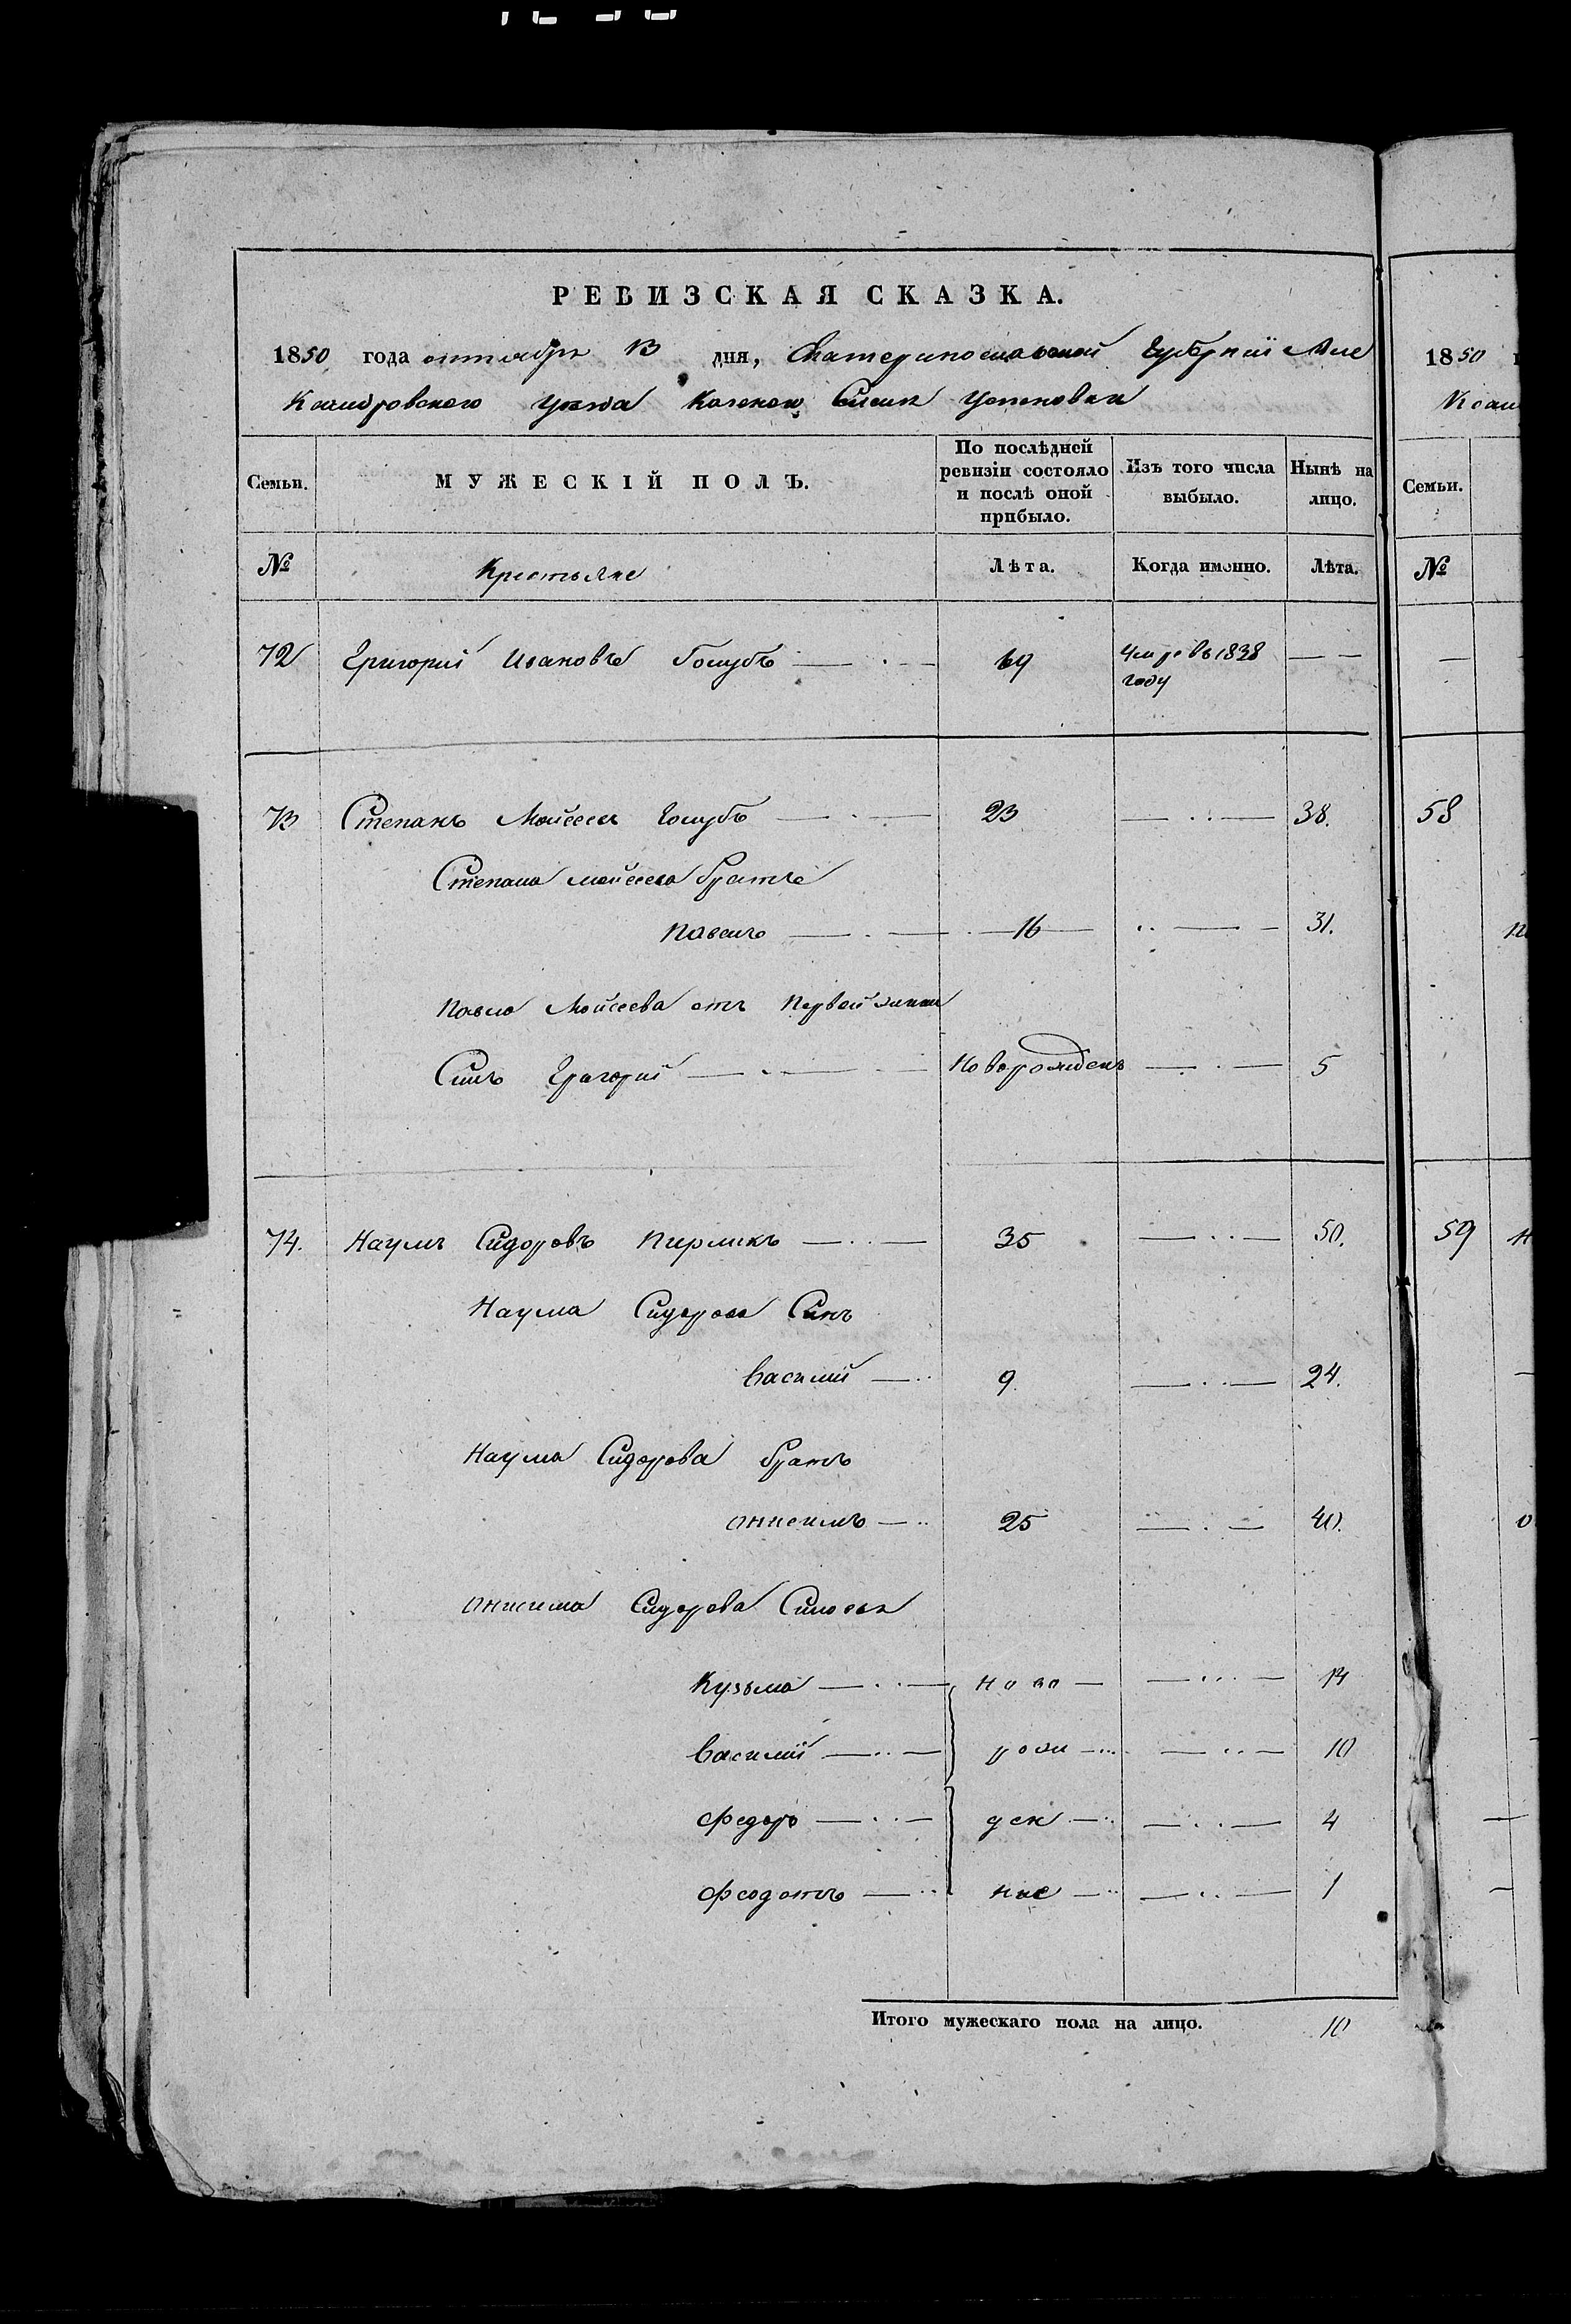 РЕВИЗСКАЯ СКАЗКА.
1850 года октября 13 дня, Екатеринославской Губернїи Але
Ксандровского Уезда Казеного Села Успеновки
Семьи. МУЖЕСКІЙ ПОЛЪ. По послѣдней ревизіи состояло и послѣ оной прибыло. Изъ того числа выбыло. Нынѣ на лицо.
№ Крестьяне Лѣта. Когда именно. Лѣта.
72 Григорий Ивановъ Голубъ 69 Умре въ 1838 году
73 Степанъ Мойсеев Голубъ 23 38.
Степана Мойсеева братъ
Павелъ 16 31.
Павла Мойсеева отъ Первой жины
Синъ Григорий Новорожденъ 5
74. Наумъ Сидоровъ Пирликъ 35 50.
Наума Сидорова Синъ
Василий 9. 24.
Наума Сидорова братъ
Онисимъ 25 40.
Онисима Сидорова Синовья
Кузьма ново 14
Василий рож 10
Федоръ ден 4
Феодотъ ние 1
Итого мужескаго пола на лицо. 10
1850
Ксан
Семьи.
№
58
59